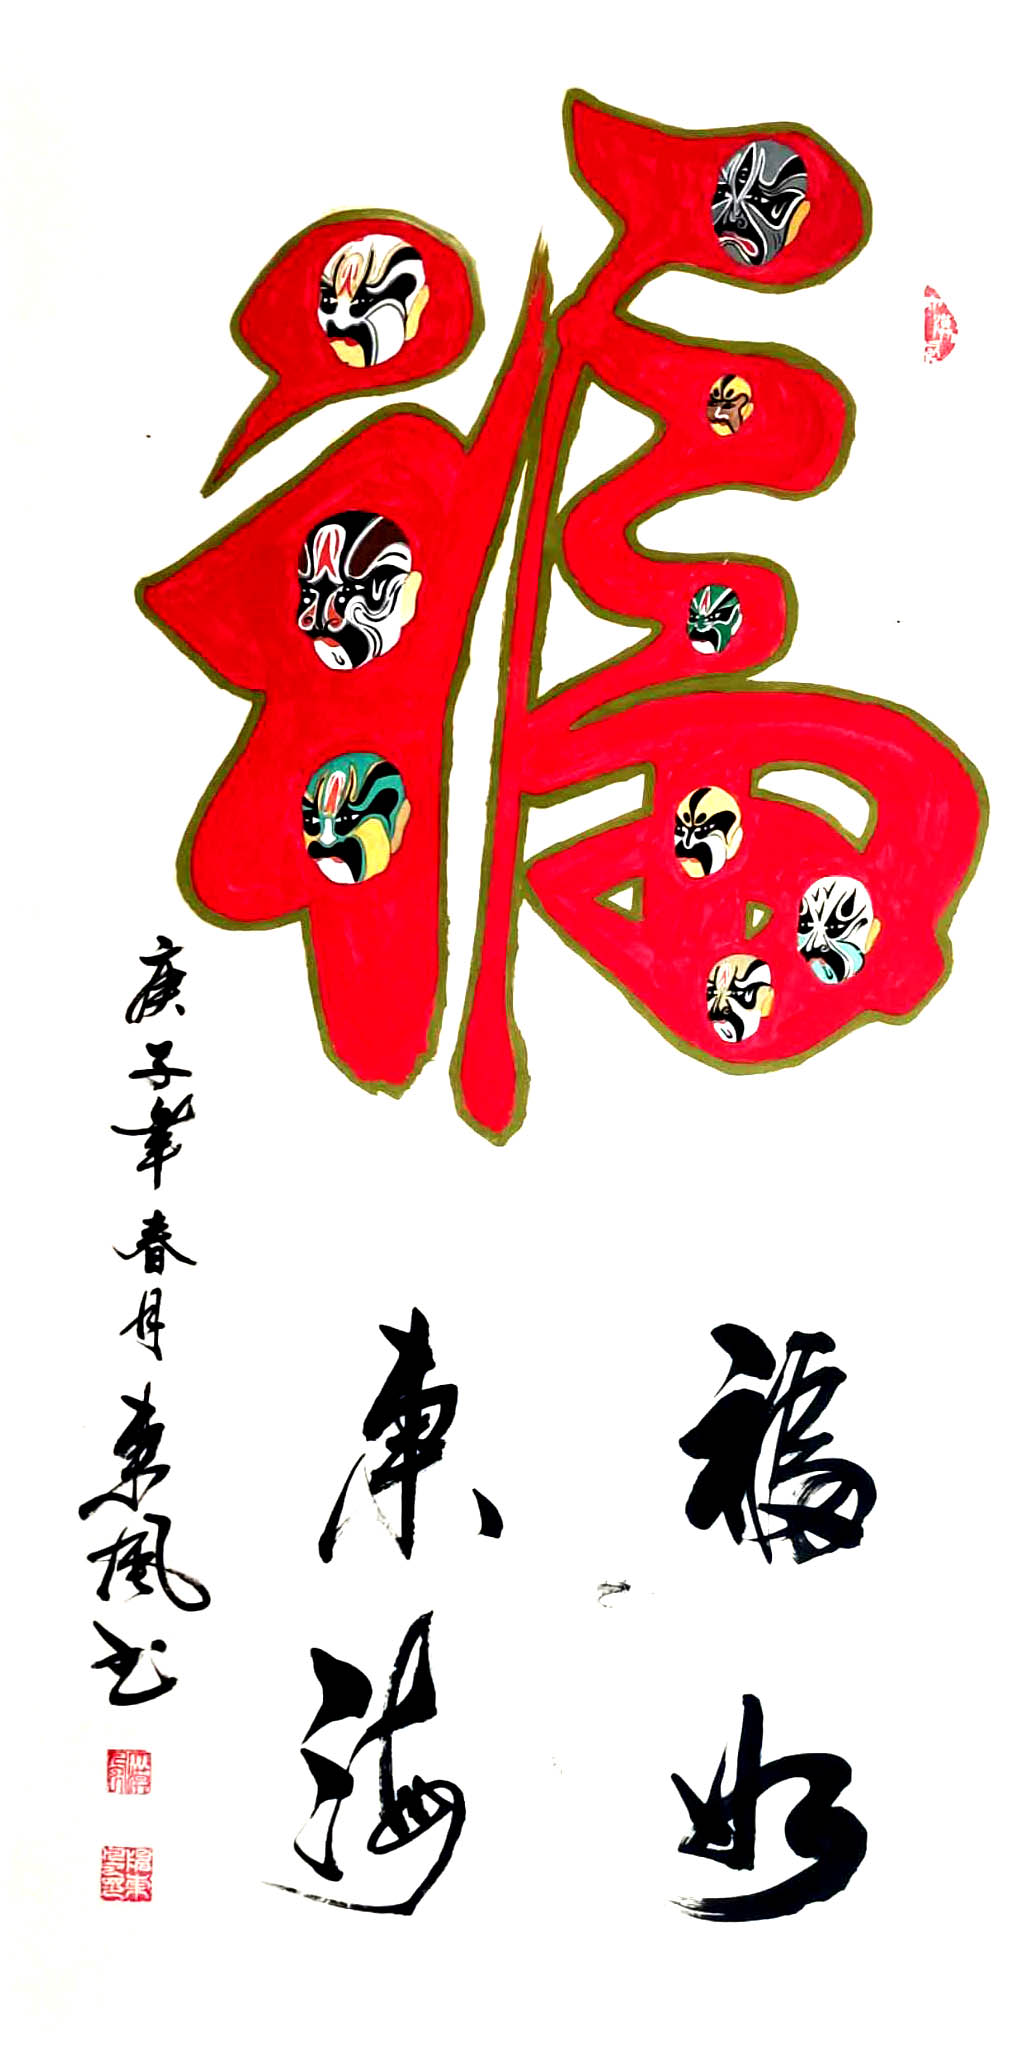 福
福如
東海
庚子年春月東風书